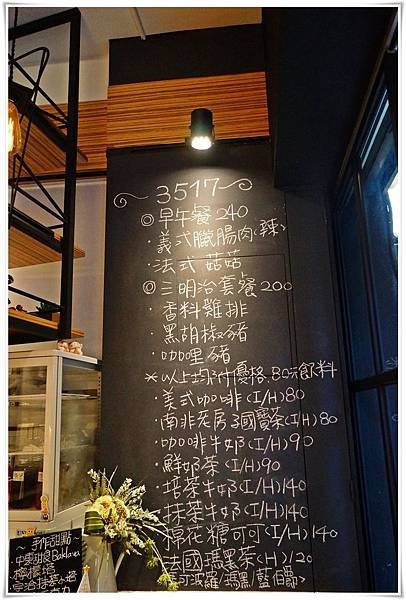 3517
◎早午餐 240
·義式臘腸肉(辣)
·法式菇菇
◎三明治套餐 200
·香料雞排
·黑胡椒豬
·咖哩豬
*以上均附優格.80元飲料
·美式咖啡(I/H)80
·南非老房子國寶茶(I/H)80
·咖啡牛奶(I/H)90
·鮮奶茶(I/H)90
·培茶牛奶(I/H)140
·抹茶牛奶(I/H)140
·棉花糖可可(I/H)140
·法國瑪黑茶(H)120
可波羅/瑪黑藍伯爵>
~手作甜點~
·中東甜浪Baklava
·檸檬塔